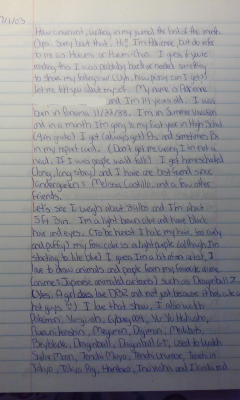 7/1/03
How convenient, writing in my journal the first of the month.
Oops. Sorry bout that. Hi! I'm Adrienne, but do refer
to me as Haruno or Haruno-Chan. I guess if you're
reading this I was probably bored or needed something
to show my fellings (or
let me tell you about myself. My name is Adrienne
and I'm 14 years old. I was
born in Panama 11/22/88. I'm in Summer vacation
and in a month I'm going to my first year in High School
(9th grade) I get (always get) A's and sometimes B's
in my report card. (Don't get me wrong I'm not a
nerd. If I was people would talk!) I get homeschooled
(long, long story) and I have one best friend since
Kindergarten: Melissa Castillo and a few other
friends.
Let's see I weigh about 90 lbs and I'm about
5ft 2in. I'm a light brown color and have black
hair and eyes. (To be honest I hate my hair, too curly
and puffy) my fav. color is a light purple (although I'm
starting to like blue) I guess I'm a bit of an artist, I
like to draw animals and people from my favorite anime
(anime = Japanese animated cartoons) such as Dragonball Z.
Yes. A girl does like DBZ and not just because it has
hot guys :) I love that show, I also watch
Pokemon, Yu-gi-oh, Cyborg 009, Yu Yu Hakusho,
Rurouni Kenshin, Megaman, Digimon, Medabots,
Beyblade, Dragonball, Dragonball GT, used to watch
Sailor Moon, Tenchi Muyo, Tenchi Universe, Tenchi in
Tokyo, Tokyo Pig, Hamtaro, Inuyasha and I kinda read